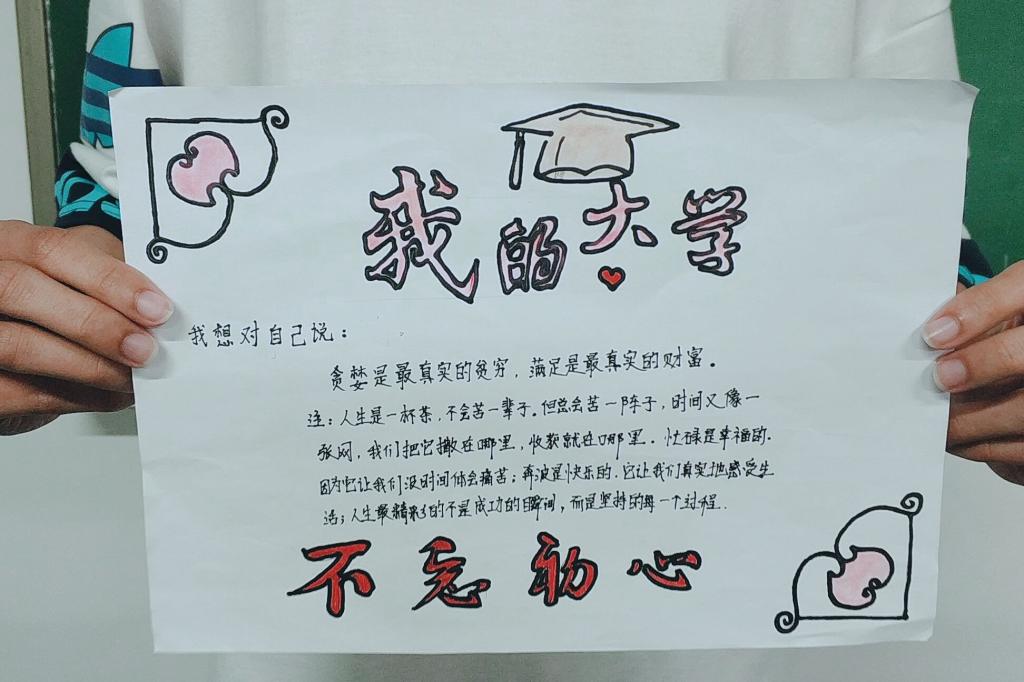 我的大学
我想对自己说：
贪婪是最真实的贫穷，满足是最真实的财富。
注：人生是一杯茶，不会苦一辈子。但总会苦一阵子，时间又像一
张网，我们把它撒在哪里，收获就在哪里。忙碌是幸福的.
因为它让我们没时间体会痛苦；奔波是快乐的.它让我们真实地感受生
活；人生最精彩的不是成功的瞬间，而是坚持的每一个过程.
不忘初心